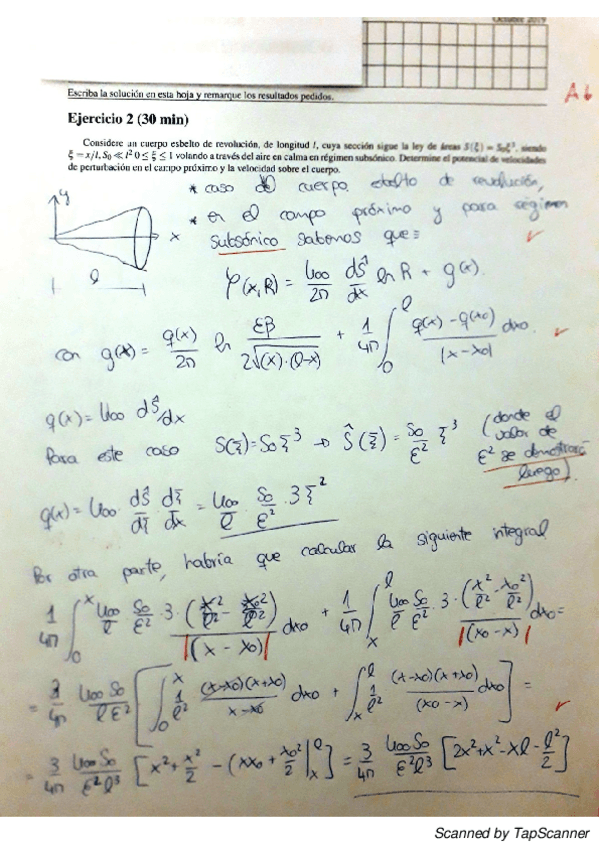 Octubre 2019
Escriba la solución en esta hoja y remarque los resultados pedidos.
A↓
Ejercicio 2 (30 min)
Considere un cuerpo esbelto de revolución, de longitud l, cuya sección sigue la ley de áreas S(ξ) = S₀ξ³, siendo
ξ = x/l, S₀ ≪ l² 0 ≤ ξ ≤ 1 volando a través del aire en calma en régimen subsónico. Determine el potencial de velocidades
de perturbación en el campo próximo y la velocidad sobre el cuerpo.
* caso cuerpo esbelto de revolución,
* en el campo próximo y para régimen
subsónico sabemos que:
y
x
l
φ(x,R) = U∞/2π dŜ/dx ln R + g(x).
con g(x) = q(x)/2π ln εβ/2√((x)·(l-x)) + 1/4π ∫₀^l q(x) - q(x₀)/|x - x₀| dx₀.
q(x) = U∞ dŜ/dx
Para este caso S(ξ) = S₀ ξ³ → Ŝ(ξ) = S₀/ε² ξ³ (donde el valor de ε² se demostrará luego).
q(x) = U∞ · dŜ/dξ dξ/dx = U∞/l · S₀/ε² · 3ξ²
Por otra parte, habría que calcular la siguiente integral
1/4π ∫₀^x U∞/l S₀/ε² · 3 · (x²/l² - x₀²/l²)/|(x - x₀)| dx₀ + 1/4π ∫ₓ^l U∞/l S₀/ε² · 3 · (x²/l² - x₀²/l²)/|(x₀ - x)| dx₀ =
= 3/4π U∞ S₀/l ε² [∫₀^x 1/l² (x-x₀)(x+x₀)/x-x₀ dx₀ + ∫ₓ^l 1/l² (x-x₀)(x+x₀)/(x₀-x) dx₀] =
= 3/4π U∞ S₀/ε² l³ [x² + x²/2 - (xx₀ + x₀²/2 |ₓ^l] = 3/4π U∞ S₀/ε² l³ [2x² + x² - xl - l²/2]
Scanned by TapScanner